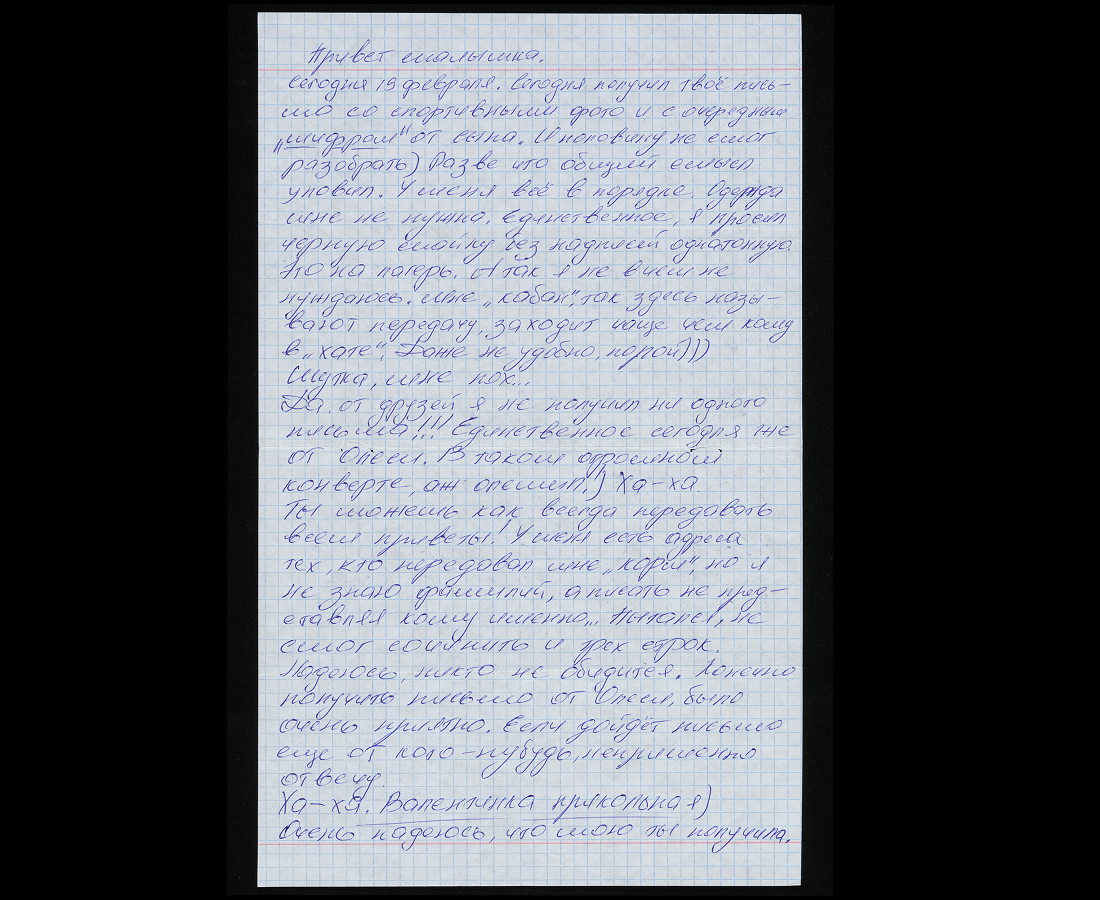 Привет малышка.
Сегодня 19 февраля. Сегодня получил твоё пись-
мо со спортивными фото и с очередным
"шифром" от сына. И половину не смог
разобрать) Разве что общий смысл
уловил. У меня всё в порядке. Одежда
мне не нужна. Единственное, я просил
чёрную майку без надписей однатонную.
Это на лагерь. А так я не в чем не
нуждаюсь. Мне "кабан", так здесь назы-
вают передачу, заходит чаще чем кому
в "хате". Даже не удобно, порой)))
Шутка, мне пох...
Да, от друзей я не получил ни одного
письма!!! Единственное сегодня же
от Олеси. В таком огромном
конверте, аж опешил!) Ха-ха.
Ты можешь как всегда передавать
всем приветы! У меня есть адреса
тех, кто передавал мне "корм", но я
не знаю фамилий, а писать не пред-
ставляя кому именно... Пытался, не
смог сочинить и трёх строк.
Надеюсь, никто не обидится. Конечно
получить письмо от Олеси, было
очень приятно. Если дойдёт письмо
еще от кого-нибудь, непременно
отвечу.
Ха-ха. Валентинка прикольная)
Очень надеюсь, что мою ты получила.